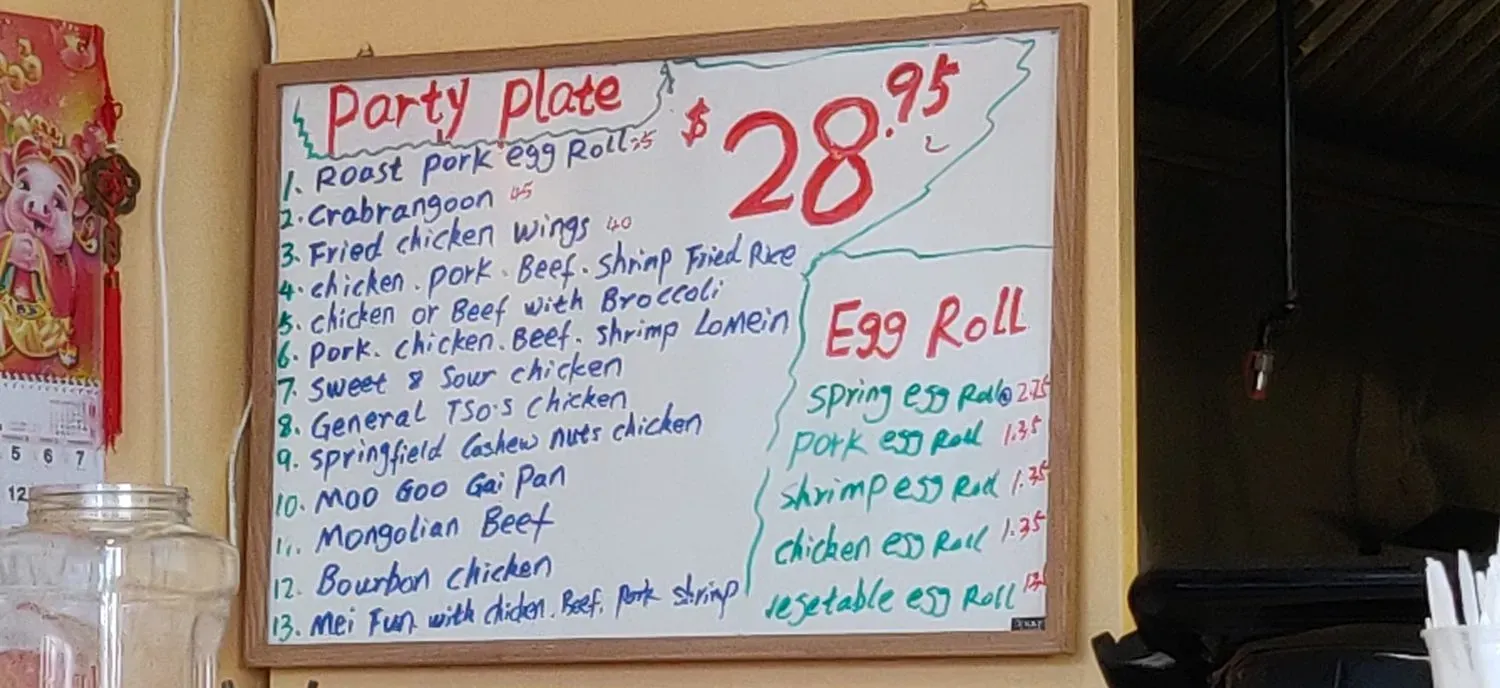 Party Plate
$28.95
1. Roast Pork egg Roll 25
2. Crabrangoon 45
3. Fried chicken wings 40
4. chicken. Pork. Beef. Shrimp Fried Rice
5. chicken or Beef with Broccoli
6. Pork. chicken. Beef. Shrimp Lomein
7. Sweet & Sour chicken
8. General TSO's chicken
9. Springfield Cashew nuts chicken
10. Moo Goo Gai Pan
11. Mongolian Beef
12. Bourbon chicken
13. Mei Fun with chicken. Beef. Pork shrimp
Egg Roll
Spring egg Roll 2.25
Pork egg Roll 1.35
Shrimp egg Roll 1.35
chicken egg Roll 1.35
vegetable egg Roll
5 6 7
12